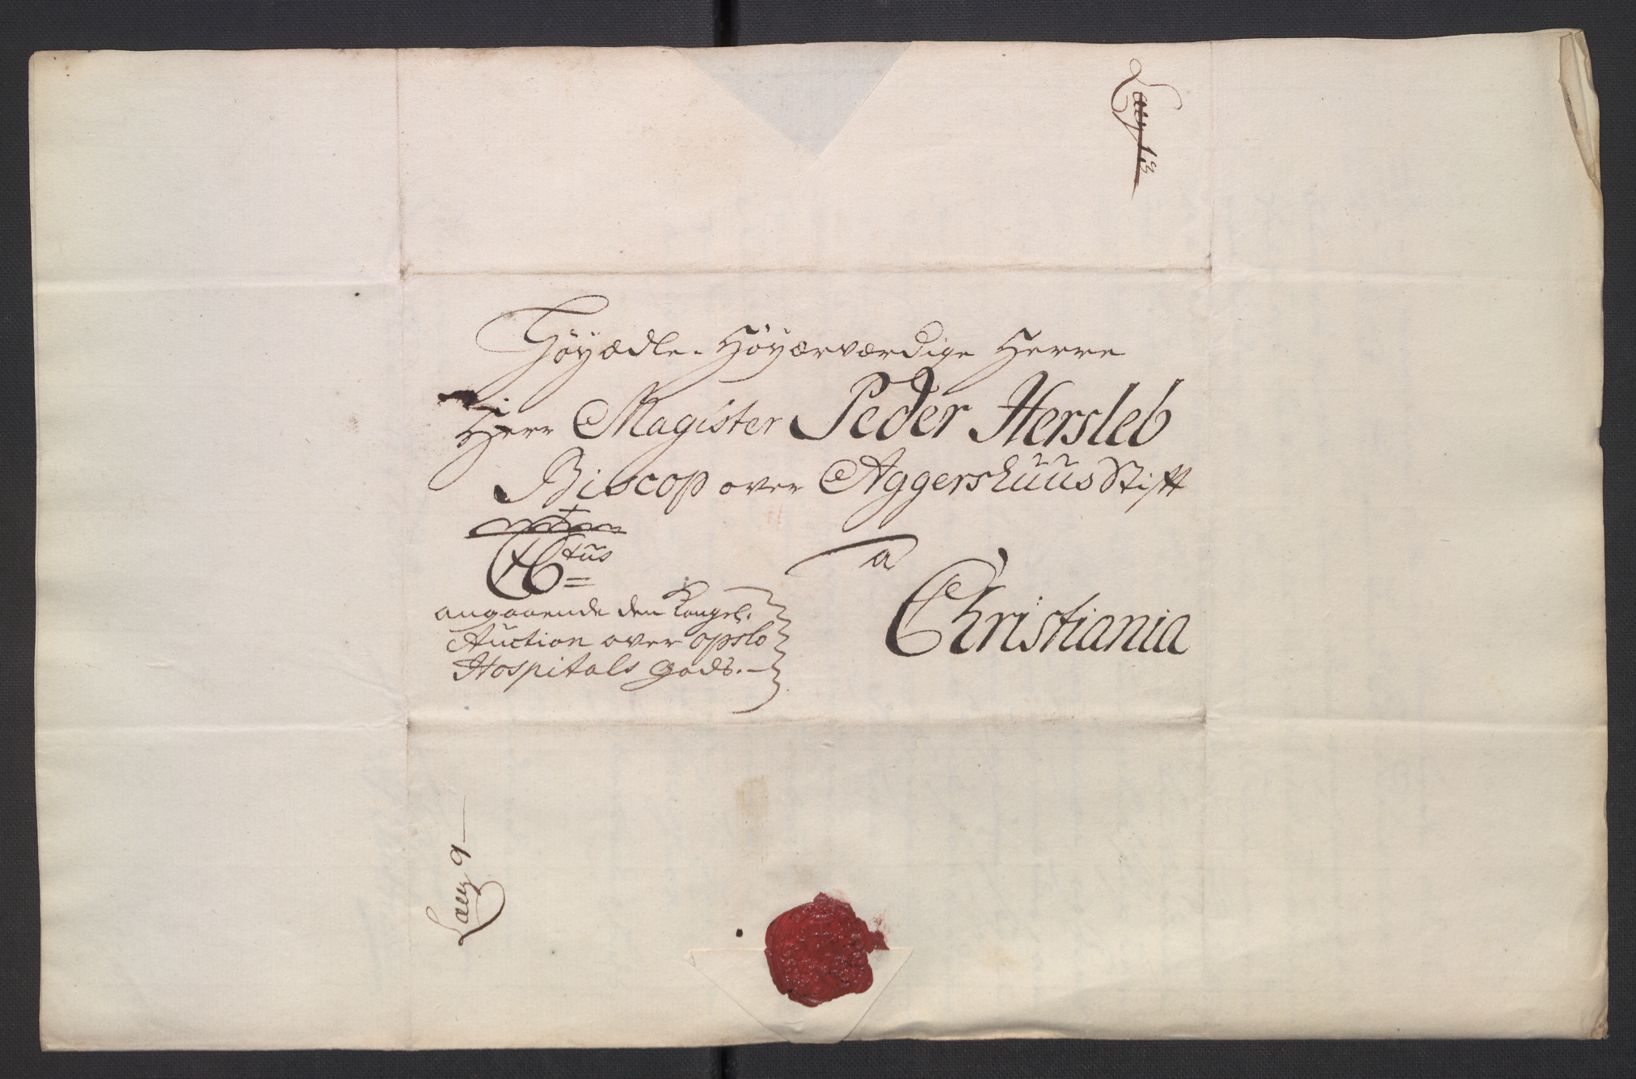 Høyædle- Høyærværdige Herre
Herr Magister Peder Hersleb
Biscop over Aggershuus Stift
a
Christiania
angaaende den Kongel.
Auction over opslo
Hospitals gods.